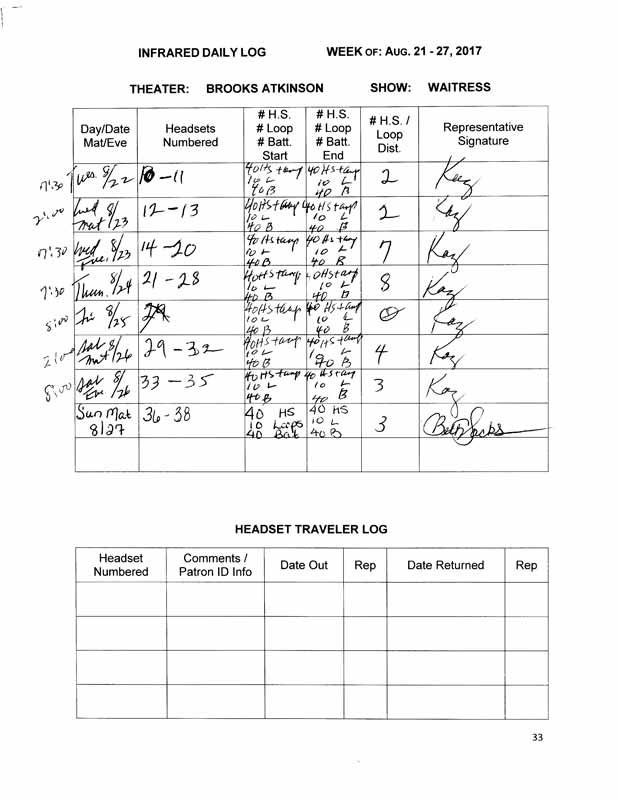 INFRARED DAILY LOG WEEK OF: AUG. 21 - 27, 2017
THEATER: BROOKS ATKINSON SHOW: WAITRESS
Day/Date
Mat/Eve
Headsets
Numbered
# H.S.
# Loop
# Batt.
Start
# H.S.
# Loop
# Batt.
End
# H.S. /
Loop
Dist.
Representative
Signature
7:30 Tues. 8/22
10-11
40 HS + amp
10 L
40 B
40 HS + amp
10 L
40 B
2
Kaz
2:00 Wed 8/23
mat
12-13
40 HS + amp
10 L
40 B
40 HS + amp
10 L
40 B
2
Kaz
7:30 Wed 8/23
Eve.
14-20
40 HS + amp
10 L
40 B
40 HS + amp
10 L
40 B
7
Kaz
7:30 Thurs. 8/24
21-28
40 HS + amp
10 L
40 B
40 HS + amp
10 L
40 B
8
Kaz
8:00 Fri 8/25
40 HS + amp
10 L
40 B
40 HS + amp
10 L
40 B
0
Kaz
2:00 Sat 8/26
mat
29-32
40 HS + amp
10 L
40 B
40 HS + amp
10 L
40 B
4
Kaz
8:00 Sat 8/26
Eve
33-35
40 HS + amp
10 L
40 B
40 HS + amp
10 L
40 B
3
Kaz
Sun Mat
8/27
36-38
40 HS
10 Loops
40 Bat
40 HS
10 L
40 B
3
HEADSET TRAVELER LOG
Headset
Numbered
Comments /
Patron ID Info
Date Out
Rep
Date Returned
Rep
33